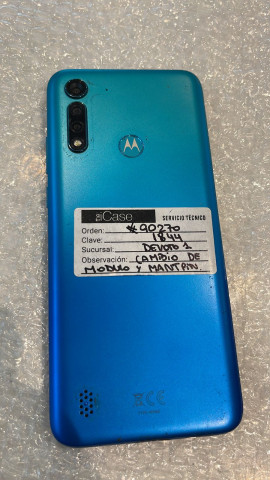 iCase SERVICIO TÉCNICO
Orden: #90270
Clave: 1844
Sucursal: DEVOTO 1
Observación: CAMBIO DE
MODULO Y MANTPIN.
CE